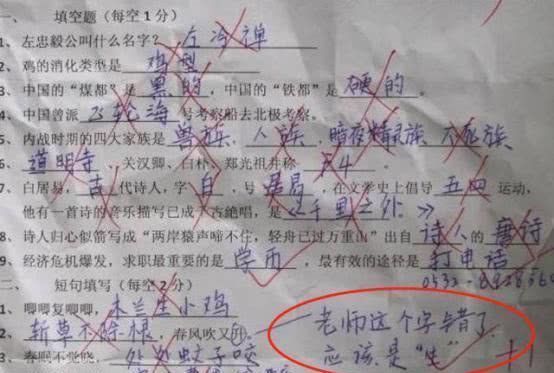 一、 填空题（每空 1 分）
1、左忠毅公叫什么名字？ 左冷禅
2、鸡的消化类型是 鸡型
3、中国的“煤都”是 黑的，中国的“铁都”是 硬的。
4、中国曾派 飞轮海 号考察船去北极考察。
5、内战时期的四大家族是 兽族、人族、暗夜精灵族、不死族
6、道明寺、关汉卿、白朴、郑光祖并称 F4。
7、白居易，古代诗人，字 白，号 居易，在文学史上倡导 五四 运动，
他有一首诗的音乐描写已成千古绝唱，是《千里之外》
8、诗人归心似箭写成“两岸猿声啼不住，轻舟已过万重山”出自 诗人 的 唐诗
9、经济危机爆发，求职最重要的是 学历，最有效的途径是 打电话
二、 短句填写（每空 2 分）
1、唧唧复唧唧，木兰生小鸡
2、斩草不除根，春风吹又
老师这个字错了.
应该是“生”
3、春眠不觉晓，处处蚊子咬
+1